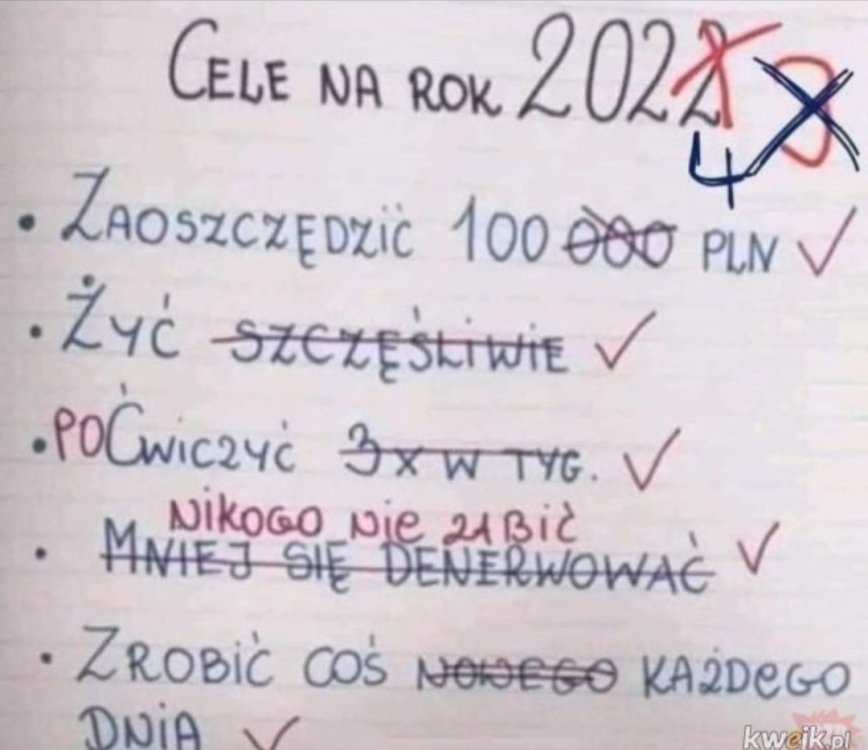 CELE NA ROK 2022 3
4
• ZAOSZCZĘDZIĆ 100 000 PLN ✓
• ŻYĆ SZCZĘŚLIWIE ✓
• POĆWICZYĆ 3 X W TYG. ✓
NIKOGO NIE ZABIĆ
• MNIEJ SIĘ DENERWOWAĆ ✓
• ZROBIĆ COŚ NOWEGO KAŻDEGO
DNIA ✓
kwejk.pl